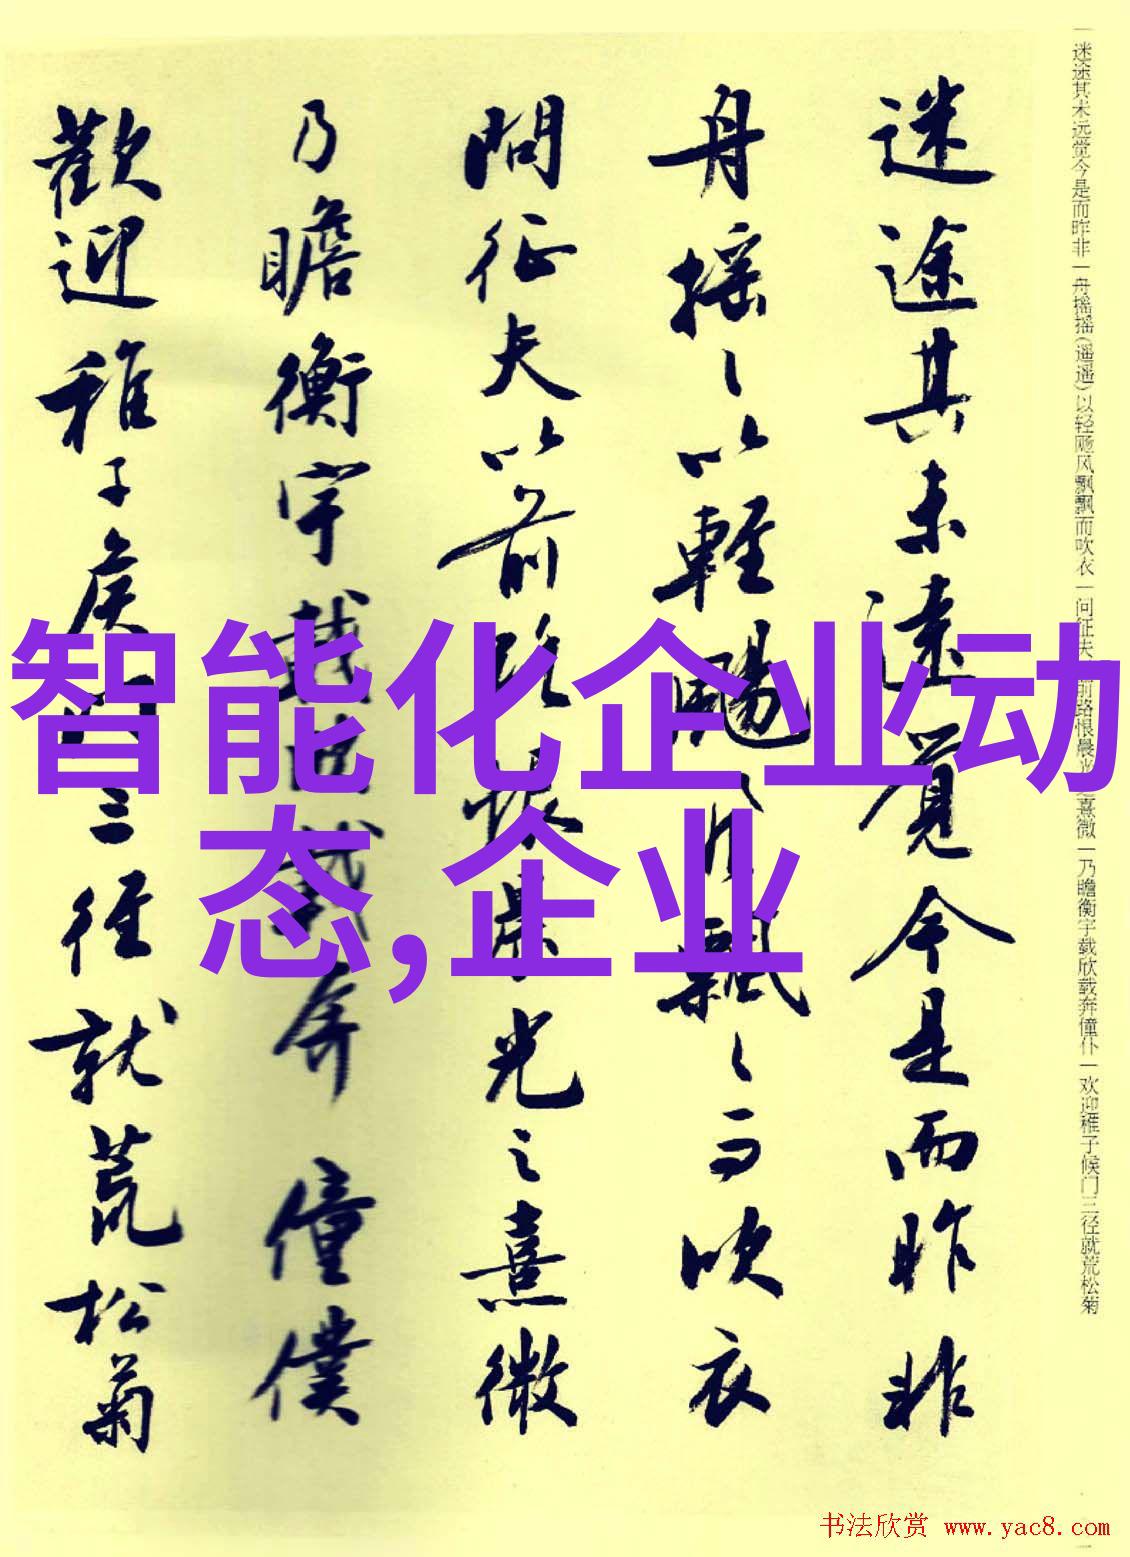 一迷途其未远觉今是而昨非一舟摇摇(遥遥)以轻飏风飘飘而吹衣一问征夫前路恨晨光之熹微一乃瞻衡宇载欣载奔僮仆一欢迎稚子候门三径就荒松菊
迷途其未遠覺今是而昨非
舟摇〻以輕颺風飄〻而吹衣
問征夫以前路恨晨光之熹微
乃瞻衡宇載欣載奔僮僕
歡迎稚子矦門三徑就荒松菊
智能化企业动
态,企业
书法欣赏 www.yac8.com